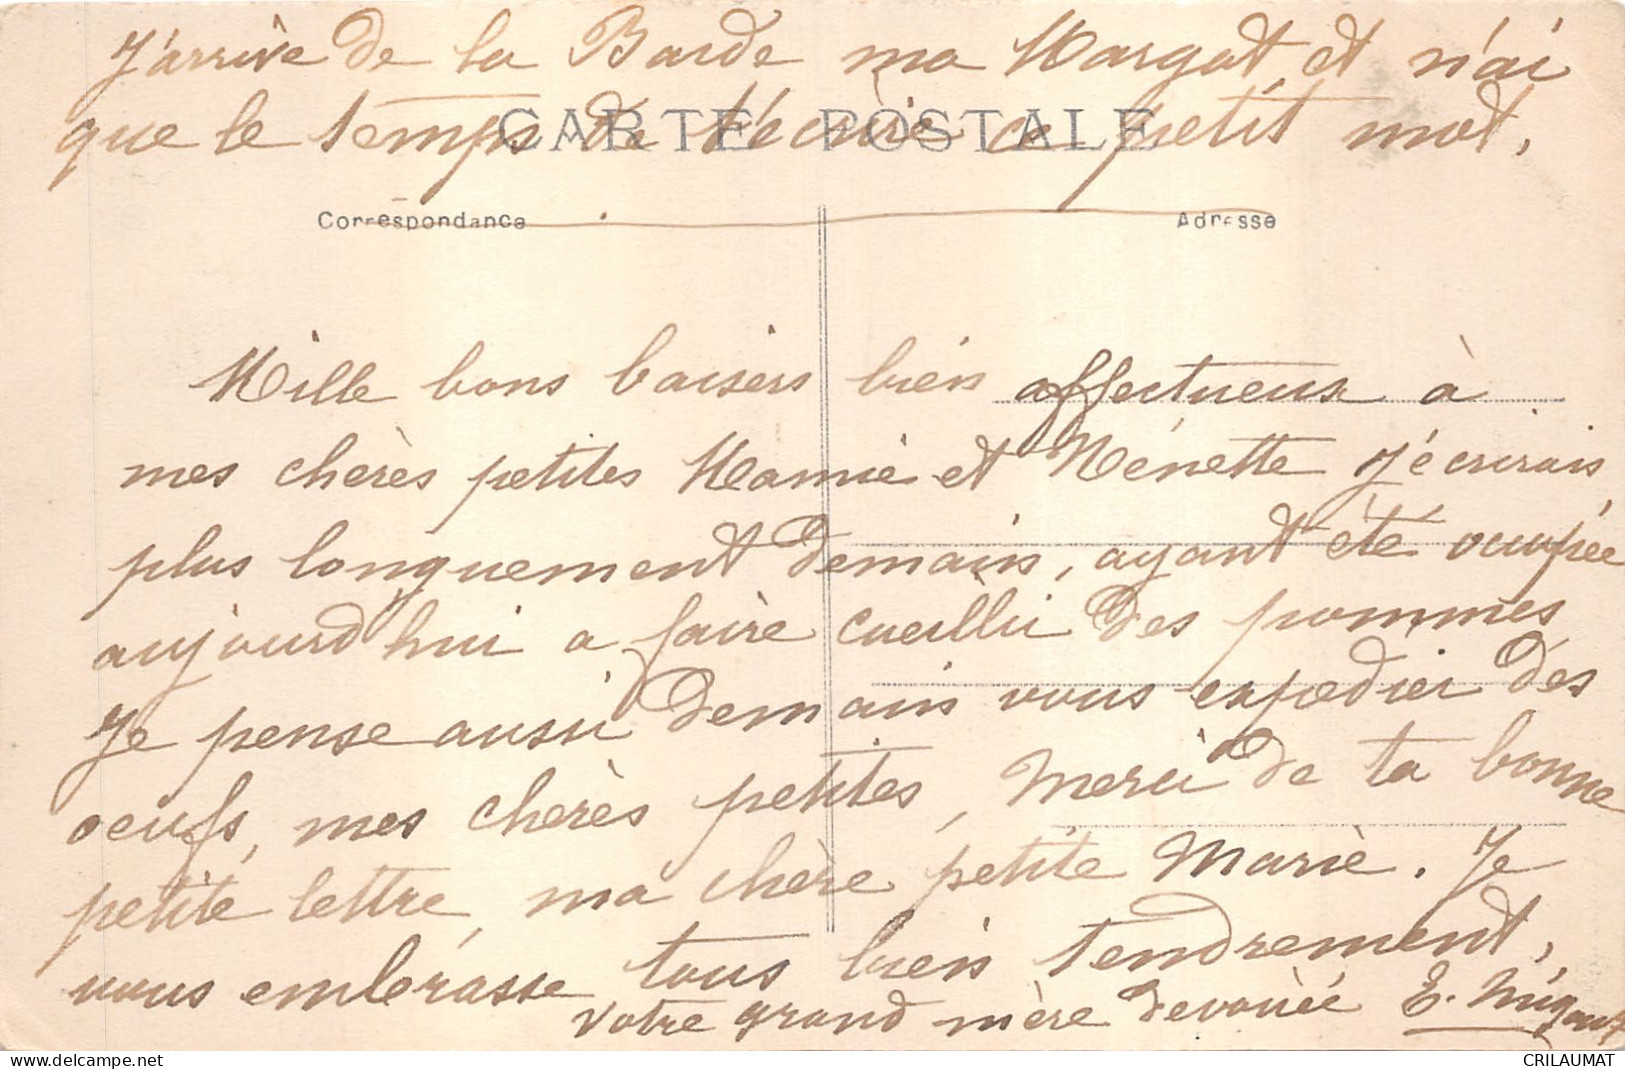 J'arrive de la Barde ma Margot, et n'ai
que le temps de t'écrire ce petit mot,
CARTE POSTALE
Correspondance
Adresse
Mille bons baisers bien affectueux à
mes chères petites Mamie et Nénette j'écrirais
plus longuement demain, ayant été occupée
aujourd hui a faire cueilli des pommes
Je pense aussi demain vous expédier des
oeufs, mes chères petites, merci de ta bonne
petite lettre, ma chère petite Marie. Je
vous embrasse tous bien tendrement,
votre grand mère dévouée E.
CRILAUMAT